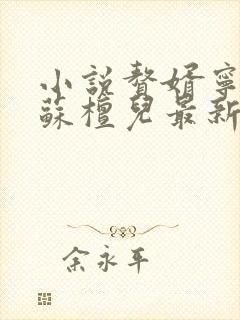 小說贅婿寧
蘇檀兒最新
余永平